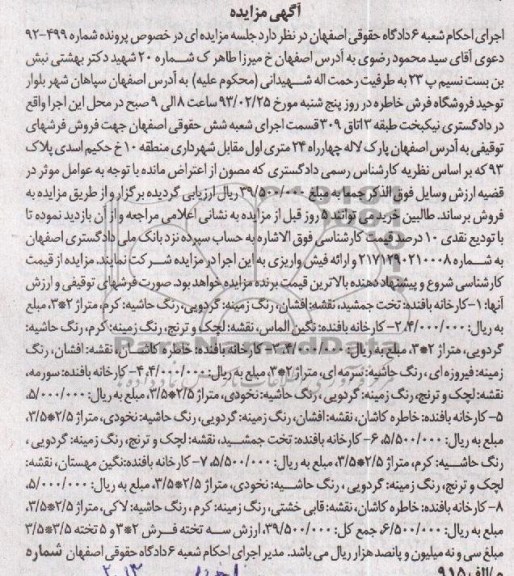 آگهی مزایده
اجرای احکام شعبه ۶ دادگاه حقوقی اصفهان در نظر دارد جلسه مزایده ای در خصوص پرونده شماره ۴۹۹-۹۲
دعوی آقای سید محمود رضوی به آدرس اصفهان خ میرزا طاهر ک شماره ۲۰ شهید دکتر بهشتی نبش
بن بست نسیم پ ۲۳ به طرفیت رحمت اله شهیدانی (محکوم علیه) به آدرس اصفهان سپاهان شهر بلوار
توحید فروشگاه فرش خاطره در روز پنج شنبه مورخ ۹۳/۰۲/۲۵ ساعت ۸ الی ۹ صبح در محل این اجرا واقع
در دادگستری نیکبخت طبقه ۳ اتاق ۳۰۹ قسمت اجرای شعبه شش حقوقی اصفهان جهت فروش فرشهای
توقیفی به آدرس اصفهان پارک لاله چهارراه ۲۴ متری اول مقابل شهرداری منطقه ۱۰ خ حکیم اسدی پلاک
۹۳ که بر اساس نظریه کارشناس رسمی دادگستری که مصون از اعتراض مانده با توجه به عوامل موثر در
قضیه ارزش وسایل فوق الذکر جمعا به مبلغ ۳۹/۵۰۰/۰۰۰ ریال ارزیابی گردیده برگزار و از طریق مزایده به
فروش برساند. طالبین خرید می توانند ۵ روز قبل از مزایده به نشانی اعلامی مراجعه و از آن بازدید نموده تا
با تودیع نقدی ۱۰ درصد قیمت کارشناسی فوق الاشاره به حساب سپرده نزد بانک ملی دادگستری اصفهان
به شماره ۲۱۷۱۲۹۰۲۱۰۰۰۸ و ارائه فیش واریزی به این اجرا در مزایده شرکت نمایند. مزایده از قیمت
کارشناسی شروع و پیشنهاد دهنده بالاترین قیمت برنده مزایده خواهد بود. صورت فرشهای توقیفی و ارزش
آنها: ۱-کارخانه بافنده: تخت جمشید، نقشه: افشان، رنگ زمینه: گردویی، رنگ حاشیه: کرم، متراژ ۲*۳، مبلغ
به ریال: ۴/۰۰۰/۰۰۰، ۲-کارخانه بافنده: نگین الماس، نقشه: لچک و ترنج، رنگ زمینه: کرم، رنگ حاشیه:
گردویی، متراژ ۲*۳، مبلغ به ریال: ۳- کارخانه بافنده: خاطره کاشان، نقشه: افشان، رنگ
زمینه: فیروزه ای، رنگ حاشیه: سرمه ای، متراژ ۲*۳، مبلغ به ریال: ۴/۰۰۰/۰۰۰، ۴-کارخانه بافنده: سورمه،
نقشه: لچک و ترنج، رنگ زمینه: گردویی، رنگ حاشیه: نخودی، متراژ ۲/۵*۳/۵، مبلغ به ریال: ۵/۰۰۰/۰۰۰،
۵- کارخانه بافنده: خاطره کاشان، نقشه: افشان، رنگ زمینه: گردویی، رنگ حاشیه: نخودی، متراژ ۲/۵*۳/۵،
مبلغ به ریال: ۵/۵۰۰/۰۰۰، ۶-کارخانه بافنده: تخت جمشید، نقشه: لچک و ترنج، رنگ زمینه: گردویی،
رنگ حاشیه: کرم، متراژ ۲/۵*۳/۵، مبلغ به ریال: ۵/۵۰۰/۰۰۰، ۷-کارخانه بافنده: نگین مهستان، نقشه:
لچک و ترنج، رنگ زمینه: گردویی، رنگ حاشیه: نخودی، متراژ ۲/۵*۳/۵، مبلغ به ریال: ۵/۰۰۰/۰۰۰،
۸-کارخانه بافنده: خاطره کاشان، نقشه: قابی خشتی، رنگ زمینه: کرم، رنگ حاشیه: لاکی، متراژ ۲/۵*۳/۵،
مبلغ به ریال: ۶/۵۰۰/۰۰۰، جمع کل: ۳۹/۵۰۰/۰۰۰، ارزش سه تخته فرش ۲*۳ و ۵ تخته ۳/۵*۲/۵
مبلغ سی و نه میلیون و پانصد هزار ریال می باشد. مدیر اجرای احکام شعبه ۶ دادگاه حقوقی اصفهان شماره
م/الف ۹۱۵
ParsNamadData